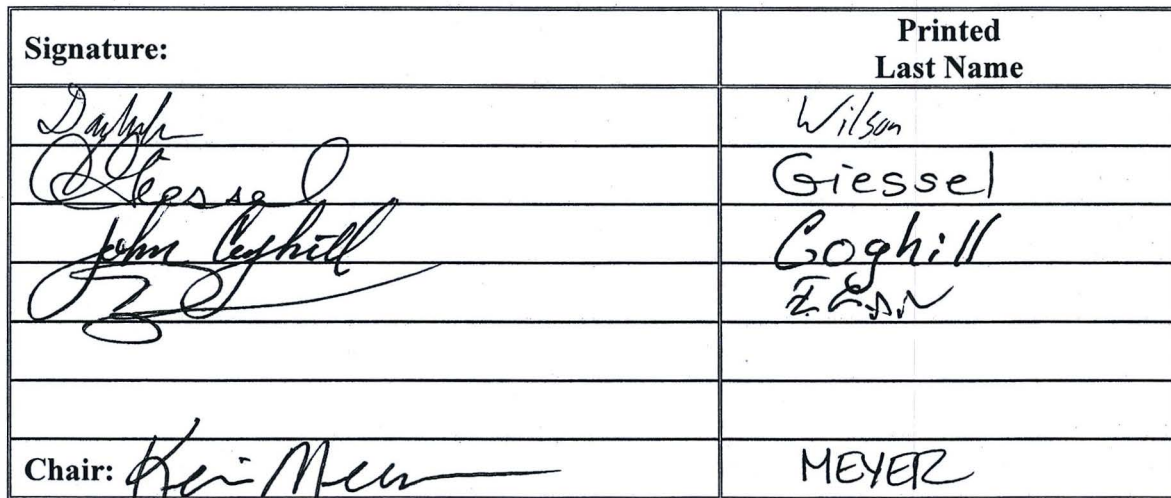 Signature: Printed
Last Name
Wilson
Giessel Giessel
John Coghill Coghill
Chair: MEYER